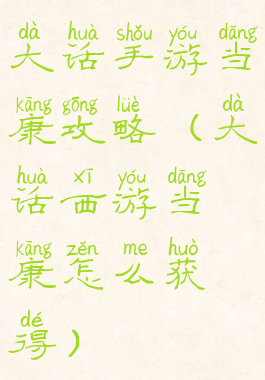 dà huà shǒu yóu dāng
大话手游当
kāng gōng lüè dà
康攻略(大
huà xī yóu dāng
话西游当
kāng zěn me huò
康怎么获
dé
得)